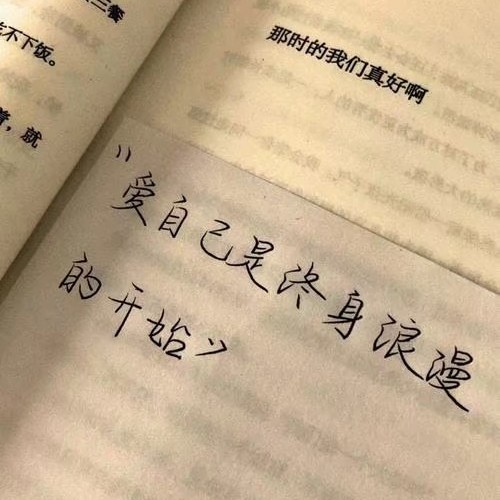 三餐
不下饭。
着，就
那时的我们真好啊
"爱自己是终身浪漫
的开始"